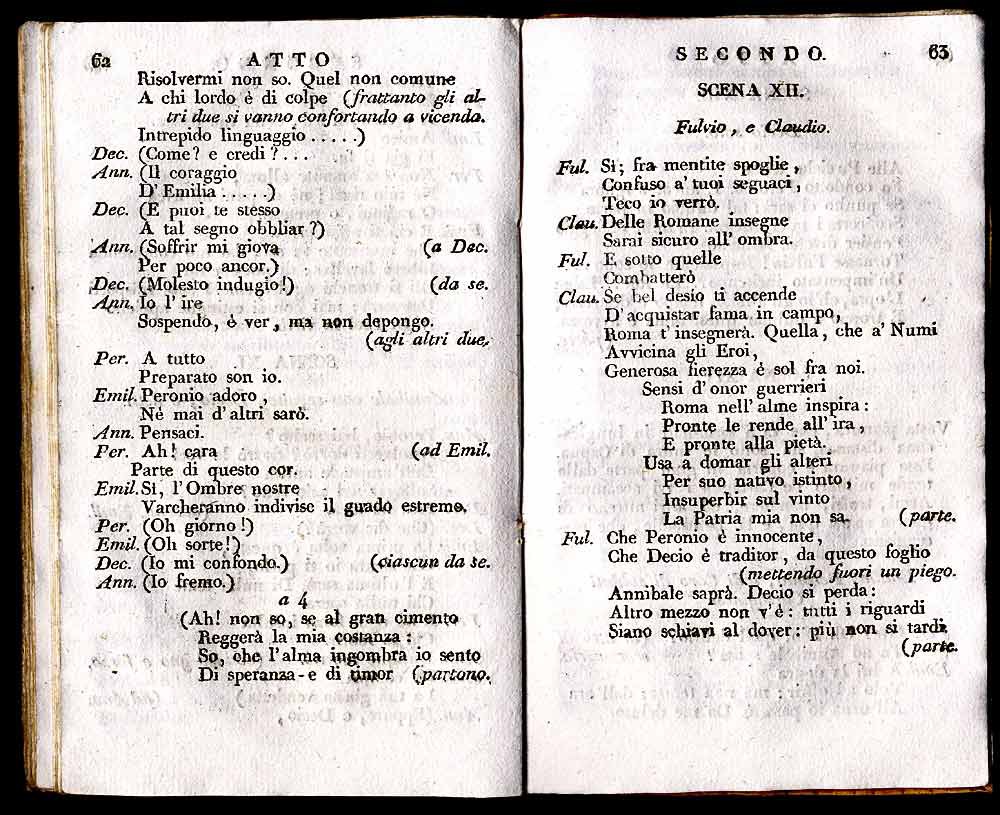 62 ATTO
Risolvermi non so. Quel non comune
A chi lordo è di colpe (frattanto gli al-
tri due si vanno confortando a vicenda.
Intrepido linguaggio . . . . .)
Dec. (Come? e credi ? . . .
Ann. (Il coraggio
D' Emilia . . . . .)
Dec. (E puoi te stesso
A tal segno obbliar ?)
Ann. (Soffrir mi giova (a Dec.
Per poco ancor.)
Dec. (Molesto indugio!) (da se.
Ann. Io l' ire
Sospendo, è ver, ma non depongo.
(agli altri due.
Per. A tutto
Preparato son io.
Emil. Peronio adoro,
Nè mai d' altri sarò.
Ann. Pensaci.
Per. Ah! cara (ad Emil.
Parte di questo cor.
Emil. Sì, l' Ombre nostre
Varcheranno indivise il guado estremo.
Per. (Oh giorno !)
Emil. (Oh sorte!)
Dec. (Io mi confondo.) (ciascun da se.
Ann. (Io fremo.)
a 4
(Ah! non so, se al gran cimento
Reggerà la mia costanza :
So, che l'alma ingombra io sento
Di speranza - e di timor (partono.
SECONDO. 63
SCENA XII.
Fulvio, e Claudio.
Ful. Sì; fra mentite spoglie,
Confuso a' tuoi seguaci,
Teco io verrò.
Clau. Delle Romane insegne
Sarai sicuro all' ombra.
Ful. E sotto quelle
Combatterò
Clau. Se bel desio ti accende
D' acquistar fama in campo,
Roma t' insegnerà. Quella, che a' Numi
Avvicina gli Eroi,
Generosa fierezza è sol fra noi.
Sensi d' onor guerrieri
Roma nell' alme inspira :
Pronte le rende all' ira,
E pronte alla pietà.
Usa a domar gli alteri
Per suo nativo istinto,
Insuperbir sul vinto
La Patria mia non sa. (parte.
Ful. Che Peronio è innocente,
Che Decio è traditor, da questo foglio
(mettendo fuori un piego.
Annibale saprà. Decio si perda:
Altro mezzo non v'è: tutti i riguardi
Siano schiavi al dover: più non si tardi.
(parte.